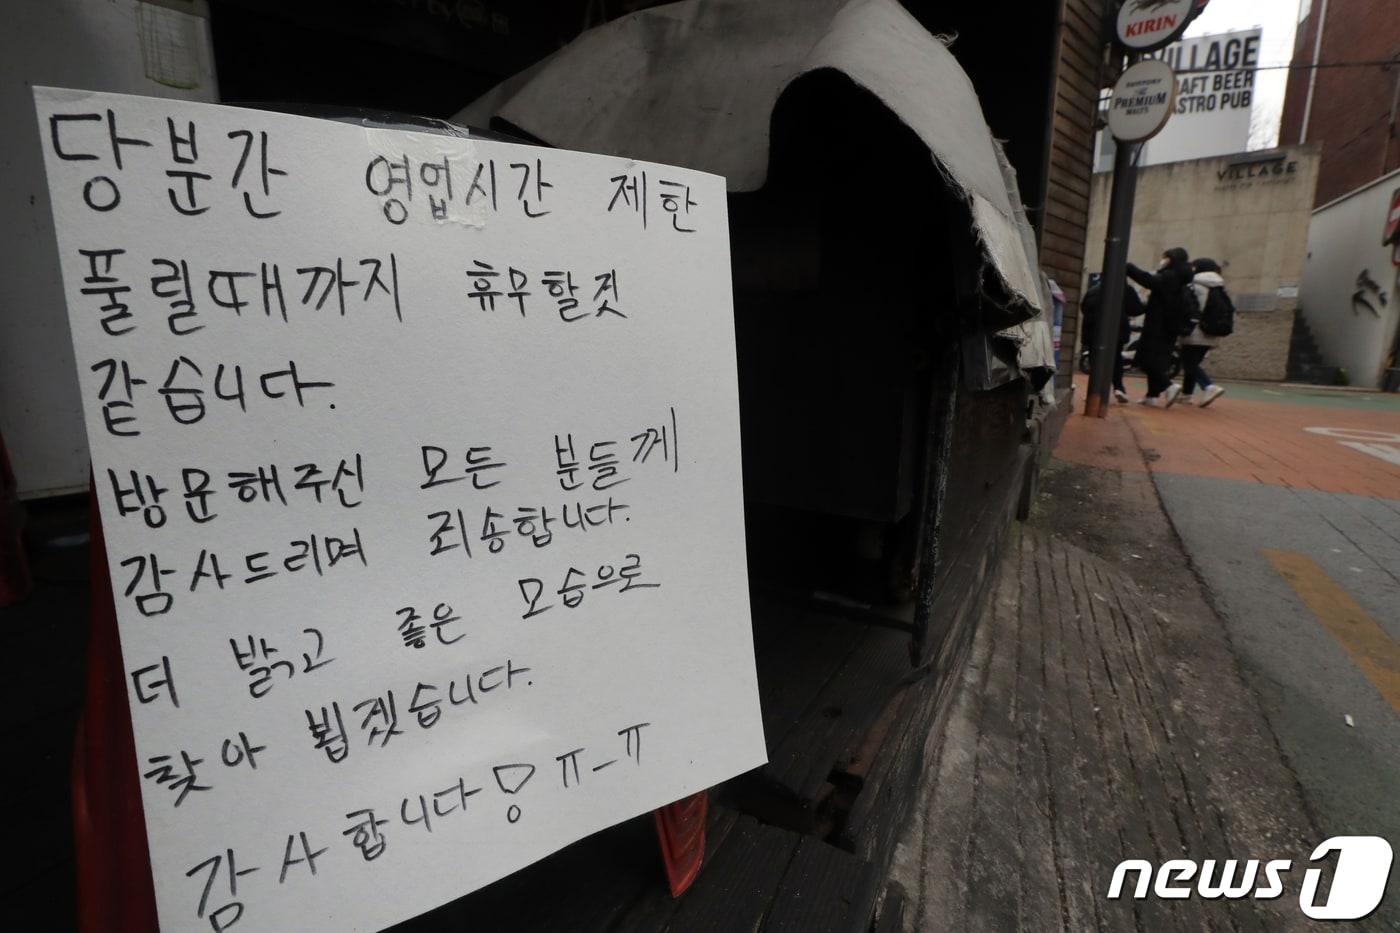 당분간 영업시간 제한
풀릴때까지 휴무할것
같습니다.
방문해주신 모든 분들께
감사드리며 죄송합니다.
더 밝고 좋은 모습으로
찾아 뵙겠습니다.
감사합니다 ㅠ_ㅠ
KIRIN
SUNTORY
THE
PREMIUM
MALT'S
VILLAGE
RAFT BEER
ASTRO PUB
VILLAGE
news1